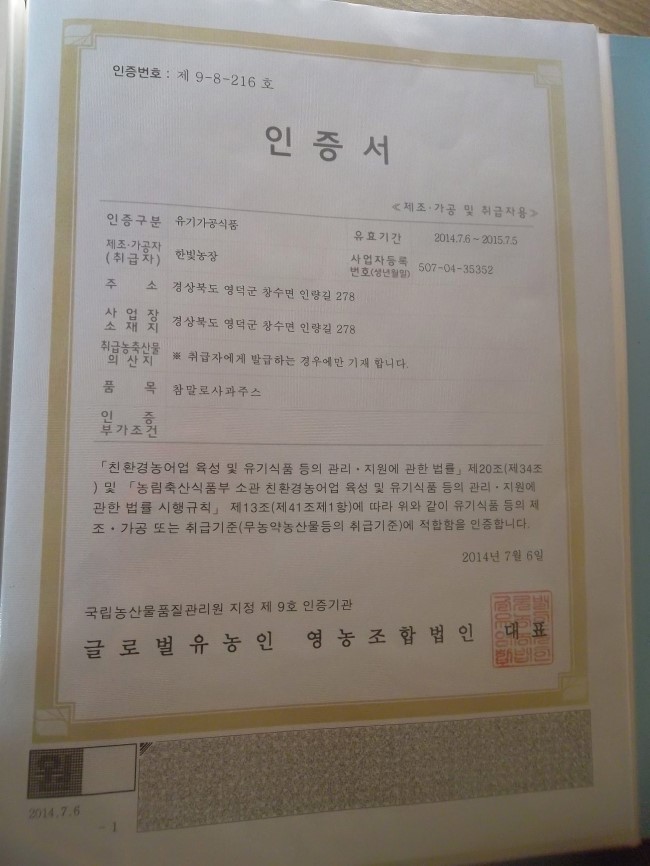 인증번호 : 제 9-8-216 호
인 증 서
≪제조·가공 및 취급자용≫
인증구분 유기가공식품 유효기간 2014.7.6 ~ 2015.7.5
제조·가공자 (취급자) 한빛농장 사업자등록 번호(생년월일) 507-04-35352
주 소 경상북도 영덕군 창수면 인량길 278
사 업 장 소 재 지 경상북도 영덕군 창수면 인량길 278
취급농축산물 의 산지 ※ 취급자에게 발급하는 경우에만 기재 합니다.
품 목 참말로사과주스
인 증 부가조건
「친환경농어업 육성 및 유기식품 등의 관리·지원에 관한 법률」제20조(제34조
) 및 「농림축산식품부 소관 친환경농어업 육성 및 유기식품 등의 관리·지원에
관한 법률 시행규칙」 제13조(제41조제1항)에 따라 위와 같이 유기식품 등의 제
조·가공 또는 취급기준(무농약농산물등의 취급기준)에 적합함을 인증합니다.
2014년 7월 6일
국립농산물품질관리원 지정 제 9호 인증기관
글로벌유농인 영농조합법인 대표
원
2014.7.6
- 1